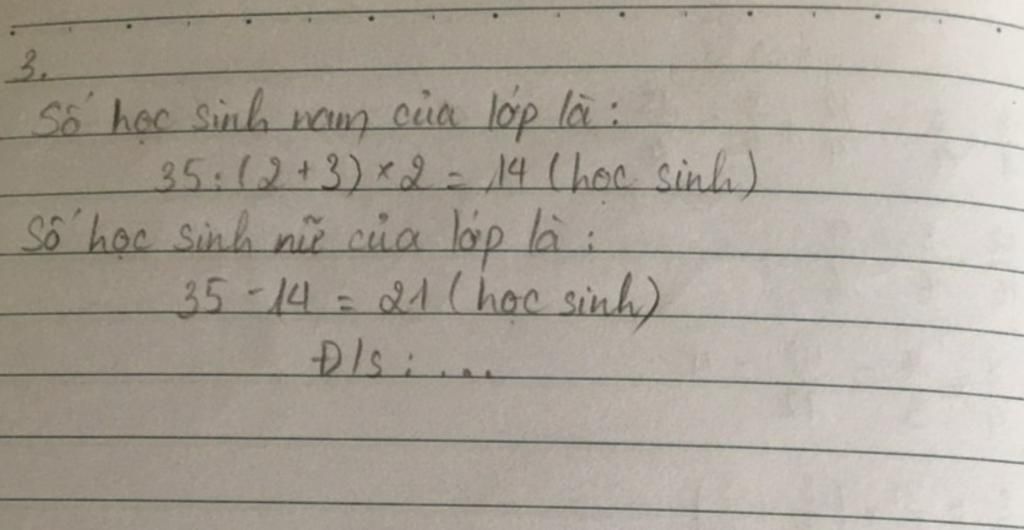 3.
Số học sinh nam của lớp là:
35:(2+3)×2=14 (học sinh)
Số học sinh nữ của lớp là:
35-14=21 (học sinh)
Đ/s:...